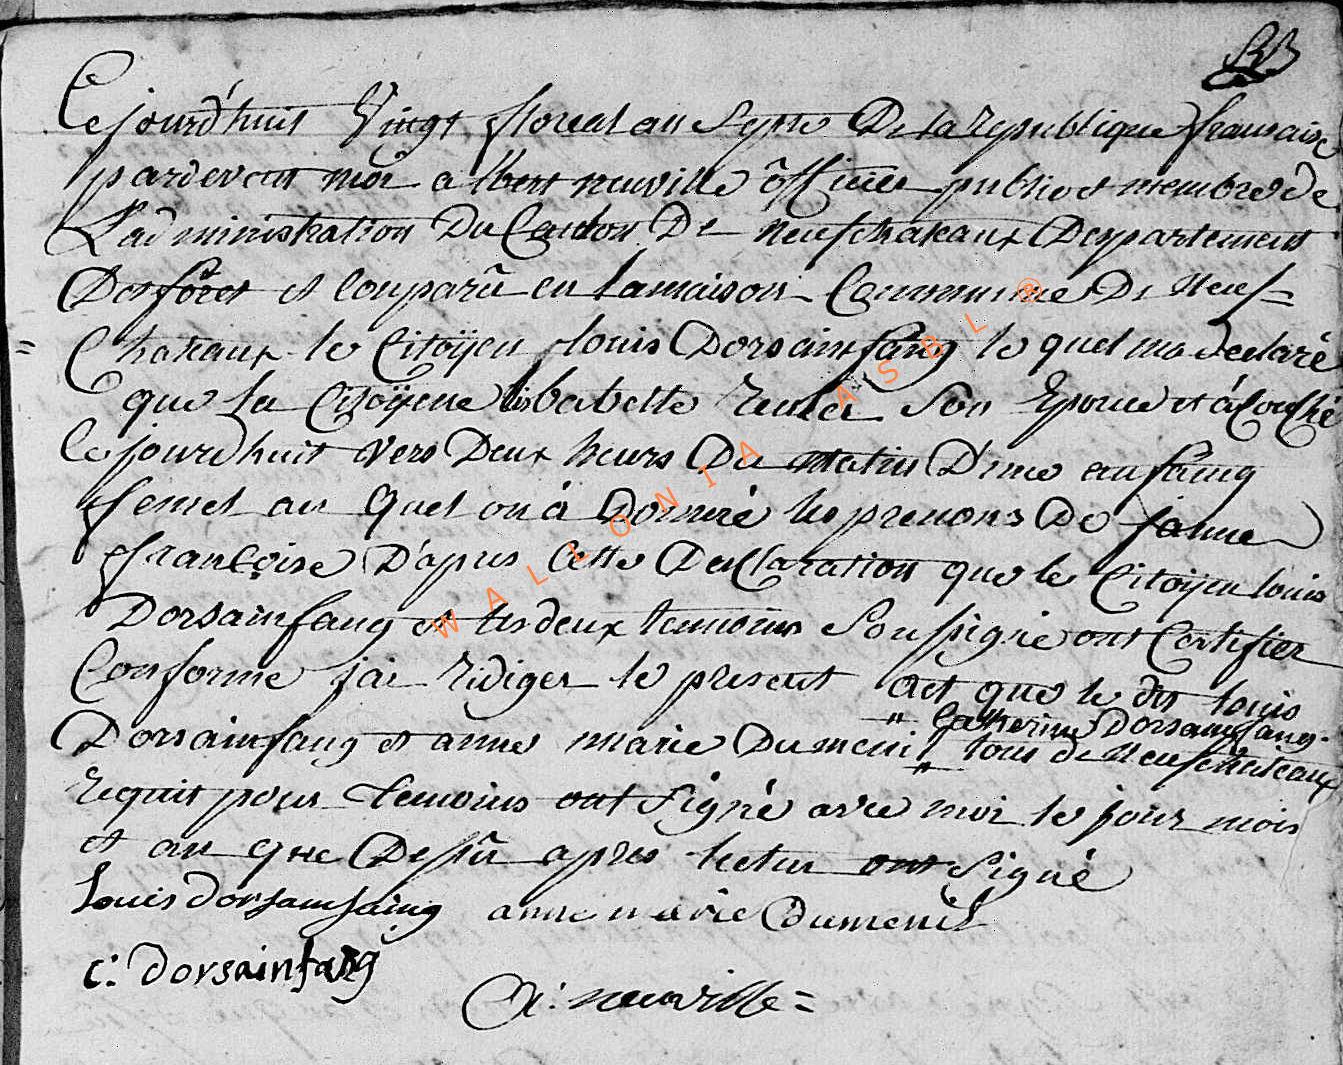 Ce jourd'huit Vingt floreal an Septe De la republique francaise
pardevent moi albert neuville officier public et membre de
L'administration Du Canton De neufchateaux Departement
Des foret et Comparû en la maison Commune De Neuf-
Chateaux le Citoÿen louis Dorsainfang le quel ma declaré
que la Citoÿene lisbabette Son Epouse et à Couché
Ce jourdhuit vers Deux heurs Du matin D'une enfang
femel au quel on à Donnéé les prenons De janne
françoise D'apres Cette Declaration que le Citoÿen louis
Dorsainfang et les deux temoins Soussigné ont Certifier
Conforme jai Rediger le present act que le dit louis
" Catherine Dorsainfang
Dorsainfang et anne marie Dumeni " tous de Neufchateaux
requit pour temoins ont Signé avec moi le jour mois
et an que Dessû apres lectur ont Signé
Louis dorsainfaing anne marie Dumenil
c: dorsainfang
A: neuville =
WALLONIA ASBL ®